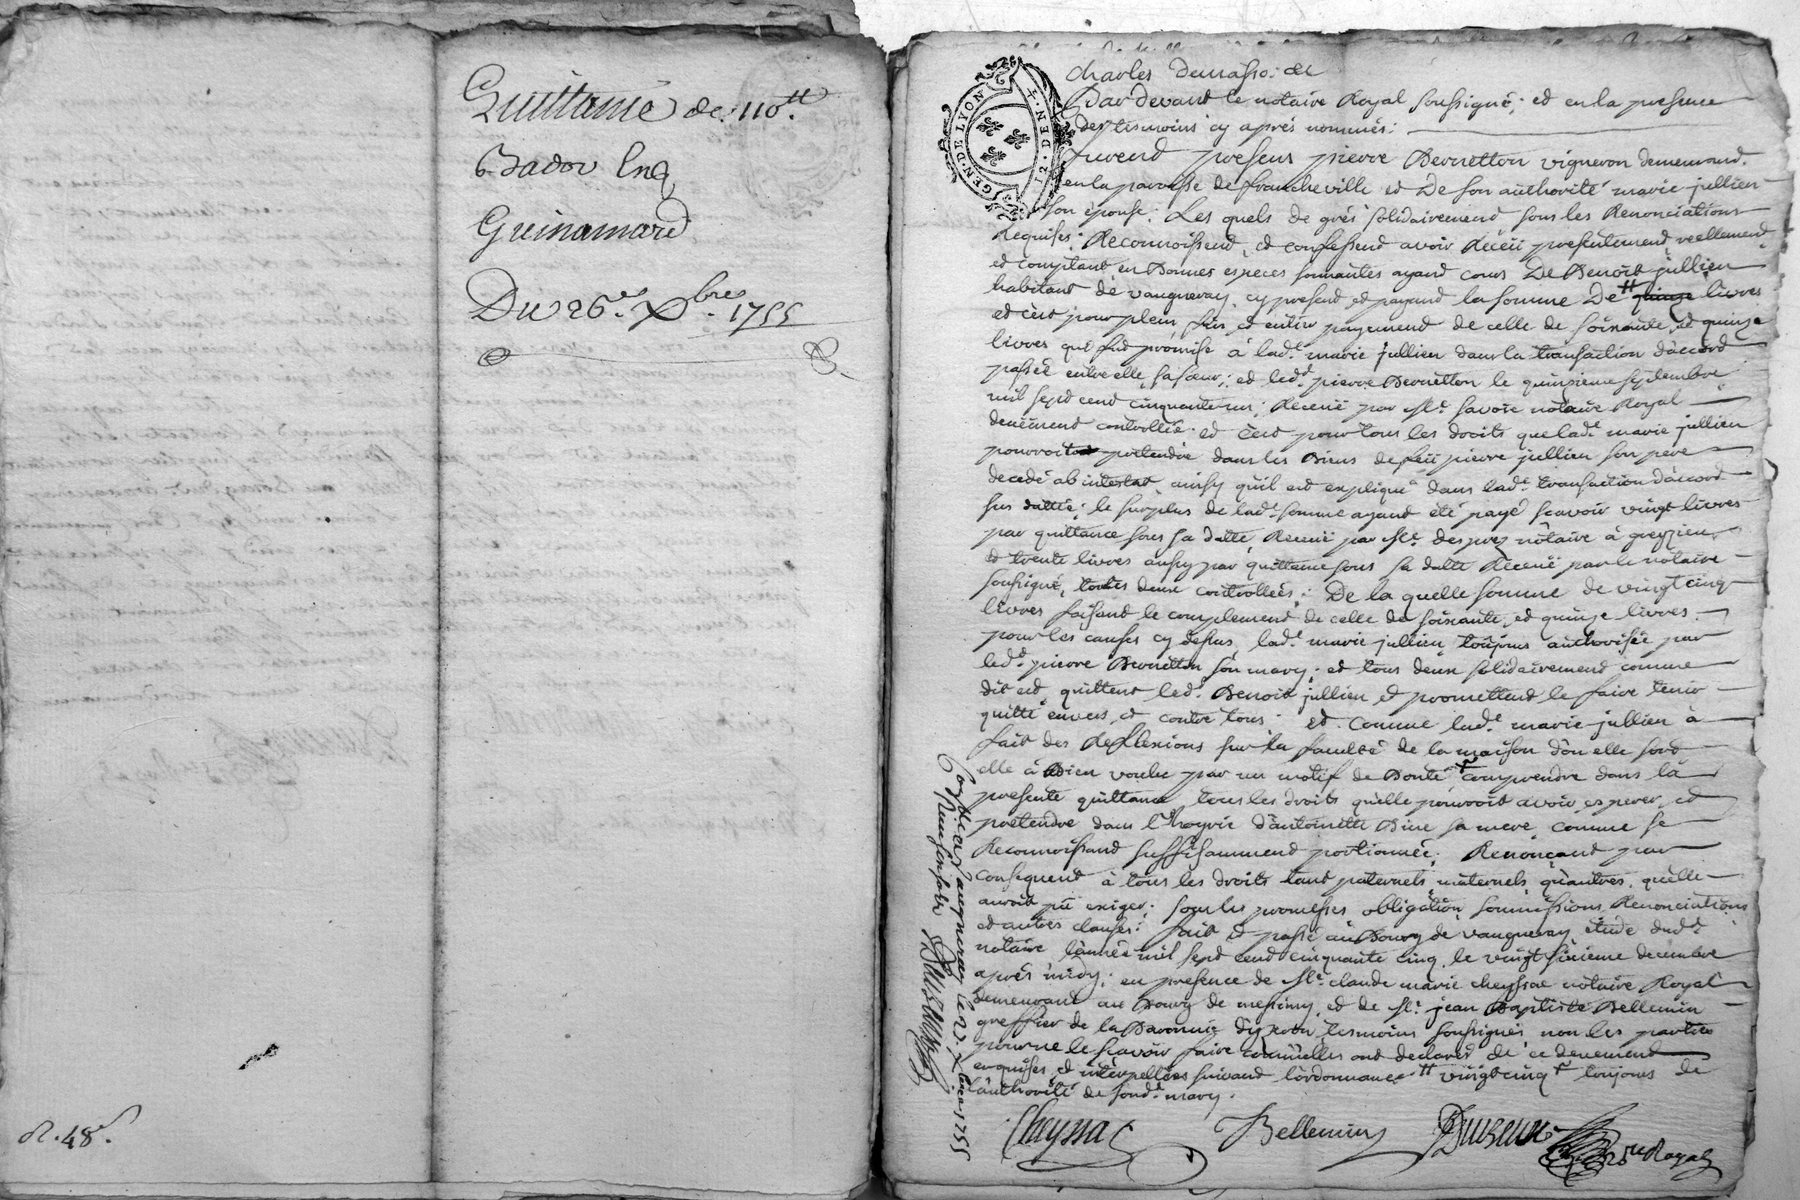 Quittance de 110.tt
Bador Enq
Guinamard
Du 26.e Xbres 1755
R. 48s.
GEN. DE LYON
12. DEN.
Charles
Par devant le notaire Royal soussigné, et en la presence
des tesmoins cy aprés nommés:
furend presens pierre Bernetton vigneron demeurand
en la paroisse de francheville et de son authorité marie jullien
son épouse; Les quels de gré solidairemend sous les Renonciations
Requises; Reconnoissend, et confessend avoir Recëu presentemend, reellemend
et comptant en Bonnes especes sonnantes ayand cours De Benoit jullien
habitant de vaugneray, cy presend et payand la somme De tt quinze livres
et c'est pour plein, fin, et entier payemend de celle de soixante, et quinze
livres qui fud promise à lad.e marie jullien dans la transaction d'accord
passée entre elle, sa sœur; et led.d pierre Bernetton le quinsieme septembre
mil sept cend cinquante un; Recëue par Me. Savoie notaire Royal
dëuëmend controllée. et c'est pour tous les droits que lad.e marie jullien
pourroit pretendre dans les Biens de fëu pierre jullien son pere
decedé ab intestat, ainsy qu'il est expliqué dans lad.e transaction d'accord
sus dattée; le surplus de lad.e somme ayand été payé scavoir vingt livres
par quittance sous sa datte, Recëue par Me. desprez notaire à grezieu,
et trente livres aussy par quittance sous sa datte Recëue par le notaire
soussigné, toutes deux controllées; De la quelle somme de vingt cinq
livres faisand le complemend de celle de soixante, et quinze livres
pour les causes cy dessus, lad.e marie jullien toujours authorisée par
led.d pierre Bernetton son mary; et tous deux solidairemend comme
dit est, quittent led. Benoit jullien et promettend le faire tenir
quitte envers, et contre tous; et comme lad.e marie jullien à
fait des Reflexions sur la faculté de la maison d'ou elle sord
elle à Bien voulu par un motif de Bonté comprendre dans la
presente quittance, tous les droits qu'elle pourroit avoir, esperer, et
pretendre dans l'hoyrie d'antoinette Bine sa mere, comme se
Reconnoissand suffisammend portionnée; Renonçand par
consequend à tous les droits tant paternels, maternels, qu'autres, qu'elle
auroit pû exiger; sous les promesses obligation, soumissions, Renonciations
et autres clauses; fait et passé au Bourg de vaugneray étude dud.t
notaire l'année mil sept cend cinquante cinq, le vingt sixieme decembre
aprés midy; en presence de Me. claude marie cheyssac notaire Royal
demeurand au Bourg de messimy, et de Me. jean Baptiste Bellemin
greffier de la Baronnie d'yzeron tesmoins soussignés non les parties
pour ne le scavoir faire comm'elles ont declaré de ce deuemend
enquises, et interpellées suivand l'ordonnance tt vingt cinq + toujours de
l'authorité de sond.t mary.
Cheyssac
Bellemin
n.re Royal
Con.lé a vaugneray le Xbre 1755
Reçu